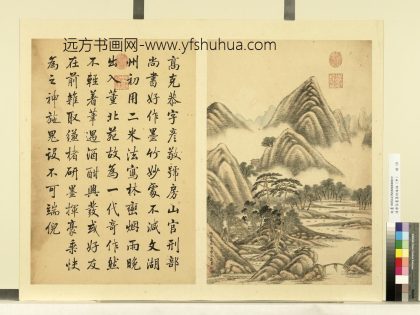 远方书画网-www.yfshuhua.com
高克恭字彦敬號房山官刑部
尚書好作墨竹妙處不減文湖
州初用二米法寫林巒烟雨晚
出入董北苑故為一代奇作然
不輕着筆遇酒酣興發或好友
在前雜取縑楮研墨揮毫乘快
為之神施鬼設不可端倪